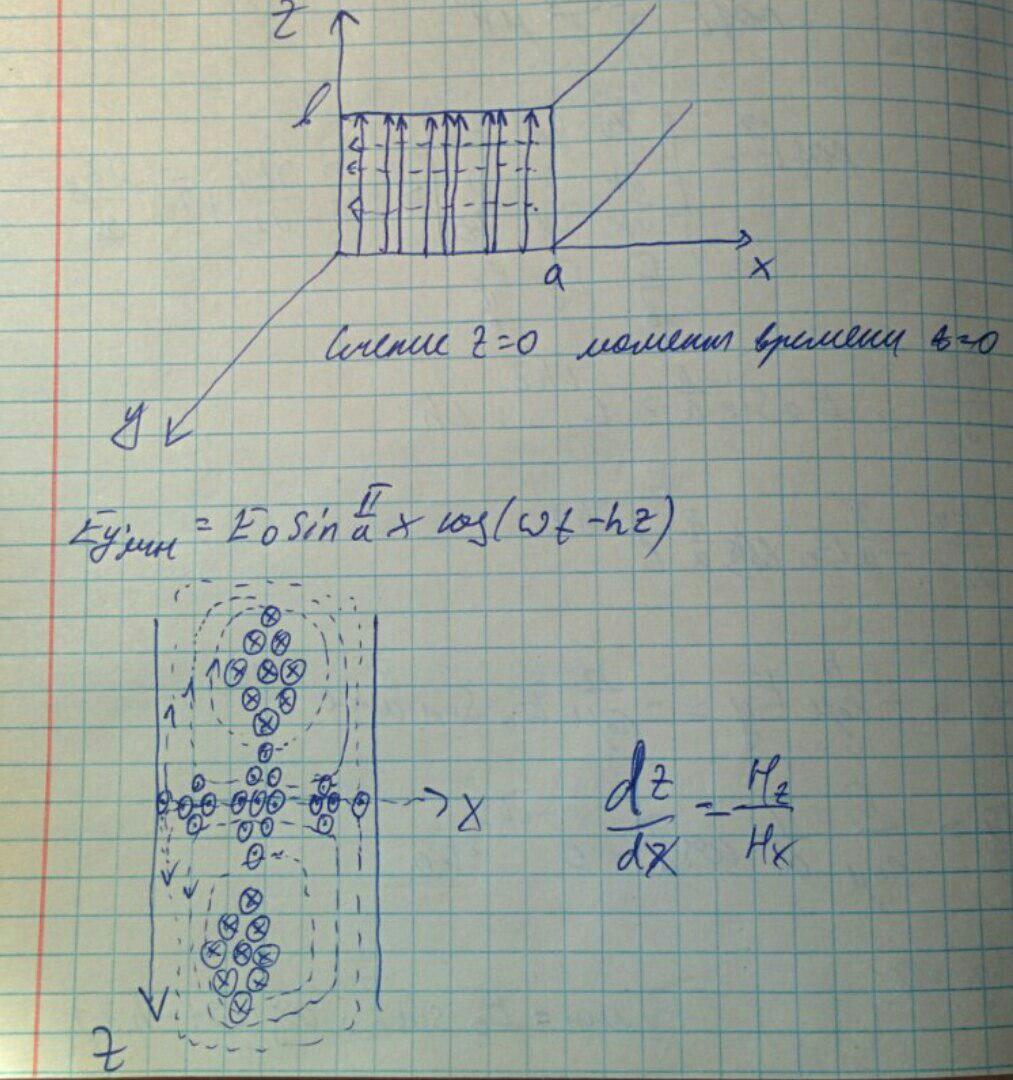 z
b
a
x
y
Сечение z=0 моменты времени t=0
E_y мгн = E_0 sin π/a x cos(ωt-hz)
x
dz/dx = H_z/H_x
z